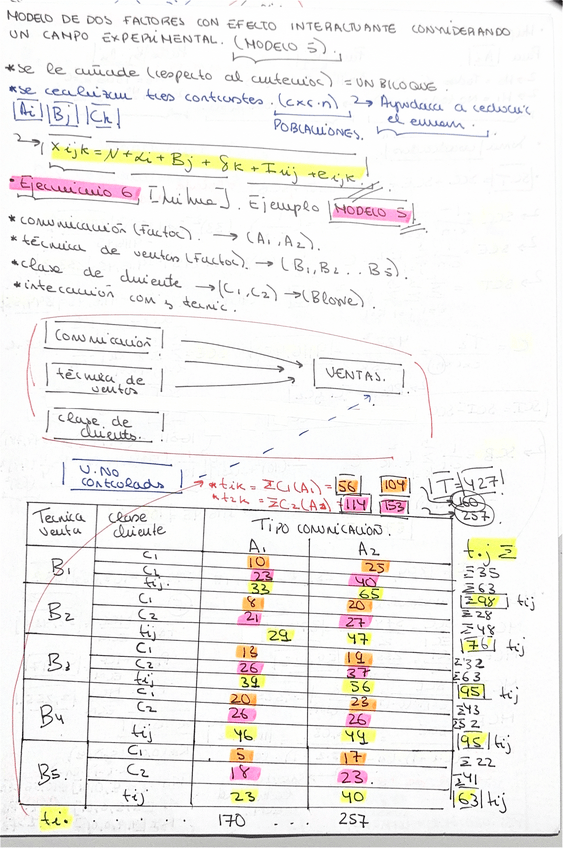 MODELO DE DOS FACTORES CON EFECTO INTERACTUANTE CONSIDERANDO
UN CAMPO EXPERIMENTAL. (MODELO 5).
*se le añade (respecto al anterior) = UN BLOQUE.
*se realizan tres contrastes. (c×c·n) → Ayudara a reducir
|Ai| |Bj| |Ck| POBLACIONES. el error.
→ xijk = N + αi + Bj + δk + Iij + eijk.
• 6. Ejemplo |MODELO 5|
*comunicación (Factor). → (A1, A2).
*técnica de ventas (Factor). → (B1, B2 .. B5).
*clase de cliente → (C1, C2) → (Bloque).
*interacción com y tecnic.
Comunicación
técnica de ventas
VENTAS.
clase de cliente.
V. NO controlada
*t1k = ΣC1(A1) = 56 104 T = 427
*t2k = ΣC2(A2) = 114 153 257
Tecnica venta clase cliente TIPO COMUNICACIÓN.
A1 A2 t.j Σ
B1 C1 10 25 Σ35
C2 23 40 Σ63
tij. 33 65 Σ98 tij
B2 C1 8 20 Σ28
C2 21 27 Σ48
tij 29 47 76 tij
B3 C1 13 19 Σ32
C2 26 37 Σ63
tij 39 56 95 tij
B4 C1 20 23 Σ43
C2 26 26 Σ52
tij 46 49 95 tij
B5. C1 5 17 Σ22
C2 18 23. Σ41
tij 23 40 63 tij
ti. . . . . . 170 . . . 257